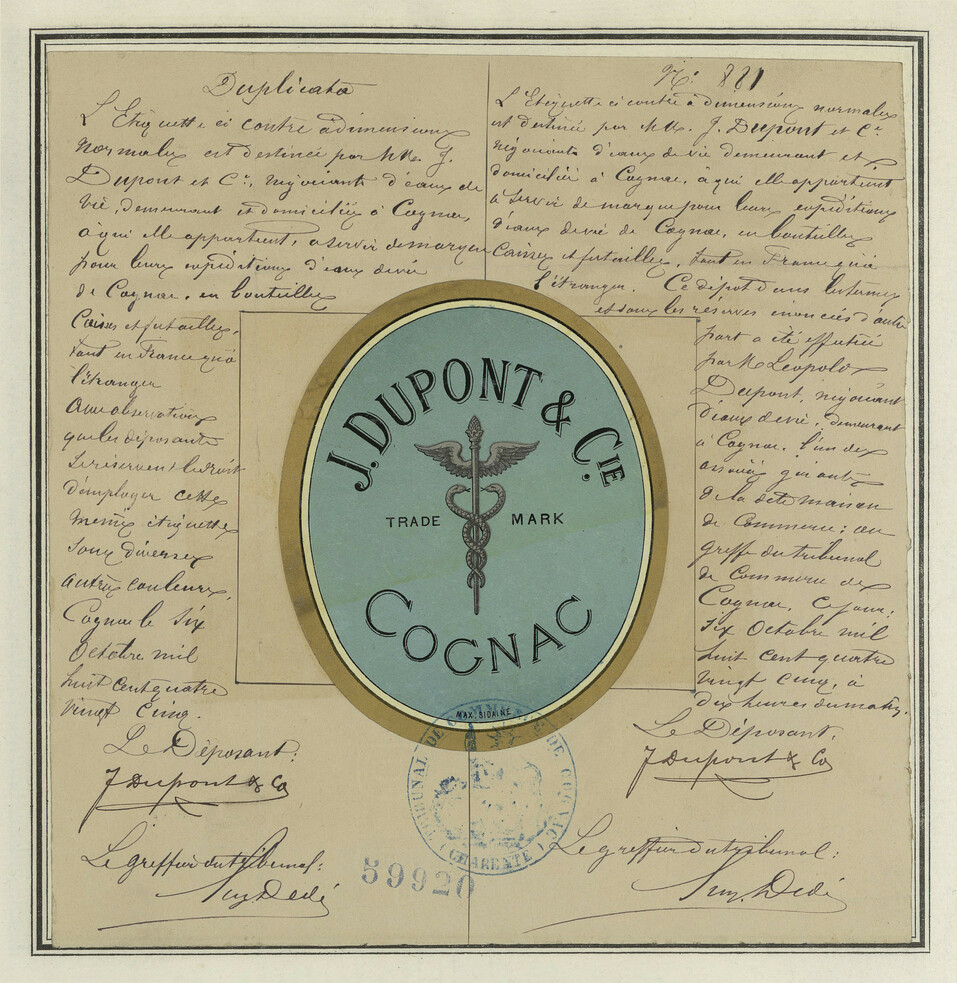 Duplicata
L'Etiquette ci contre à dimensions
normales est destinée par MM. J.
Dupont et Cie, négociants d'eaux de
vie, demeurant et domiciliés à Cognac,
à qui elle appartient, à servir de marque
pour leurs expéditions d'eaux de vie
de Cognac, en bouteilles
Caisses et futailles,
tant en France qu'à
l'étranger
Avec observation
que les déposants
se réservent le droit
d'employer cette
même étiquette
sous diverses
autres couleurs.
Cognac le six
Octobre mil
huit cent quatre
vingt cinq.
Le Déposant.
J Dupont & Co
Le greffier du tribunal:
No 881
L'Etiquette ci contre à dimensions normales
est destinée par MM. J. Dupont et Cie
négociants d'eaux de vie demeurant et
domiciliés à Cognac, à qui elle appartient
à servir de marque pour leurs expéditions
d'eaux de vie de Cognac, en bouteilles
Caisses et futailles, tant en France qu'à
l'étranger. Ce dépôt dans les termes
et sous les réserves énoncées d'autre
part a été effectué
par M Léopold
Dupont, négociant
d'eaux de vie, demeurant
à Cognac, l'un des
associés gérants
de la dite maison
de Commerce; au
greffe du tribunal
de Commerce de
Cognac. Ce jour:
six Octobre mil
huit cent quatre
vingt cinq, à
dix heures du matin.
Le Déposant.
J Dupont & Co
Le greffier du tribunal:
J. DUPONT & CIE.
TRADE MARK
COGNAC
MAX. SIDAINE
TRIBUNAL DE COMMERCE DE COGNAC
(CHARENTE)
59920